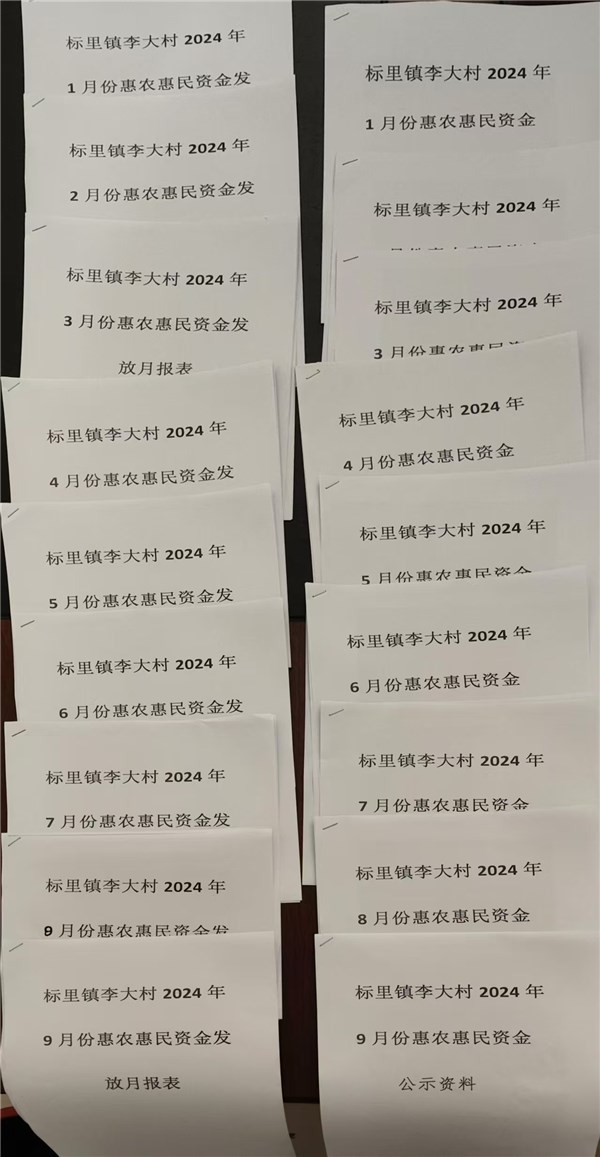 标里镇李大村 2024 年
1 月份惠农惠民资金发
标里镇李大村 2024 年
2 月份惠农惠民资金发
标里镇李大村 2024 年
3 月份惠农惠民资金发
放月报表
标里镇李大村 2024 年
4 月份惠农惠民资金发
标里镇李大村 2024 年
5 月份惠农惠民资金发
标里镇李大村 2024 年
6 月份惠农惠民资金发
标里镇李大村 2024 年
7 月份惠农惠民资金发
标里镇李大村 2024 年
月份惠农惠民资金发
标里镇李大村 2024 年
9 月份惠农惠民资金发
放月报表
标里镇李大村 2024 年
1 月份惠农惠民资金
标里镇李大村 2024 年
标里镇李大村 2024 年
3 月份惠农惠民资
标里镇李大村 2024 年
4 月份惠农惠民资金
标里镇李大村 2024 年
5 月份惠农惠民资金
标里镇李大村 2024 年
6 月份惠农惠民资金
标里镇李大村 2024 年
7 月份惠农惠民资金
标里镇李大村 2024 年
8 月份惠农惠民资金
标里镇李大村 2024 年
9 月份惠农惠民资金
公示资料